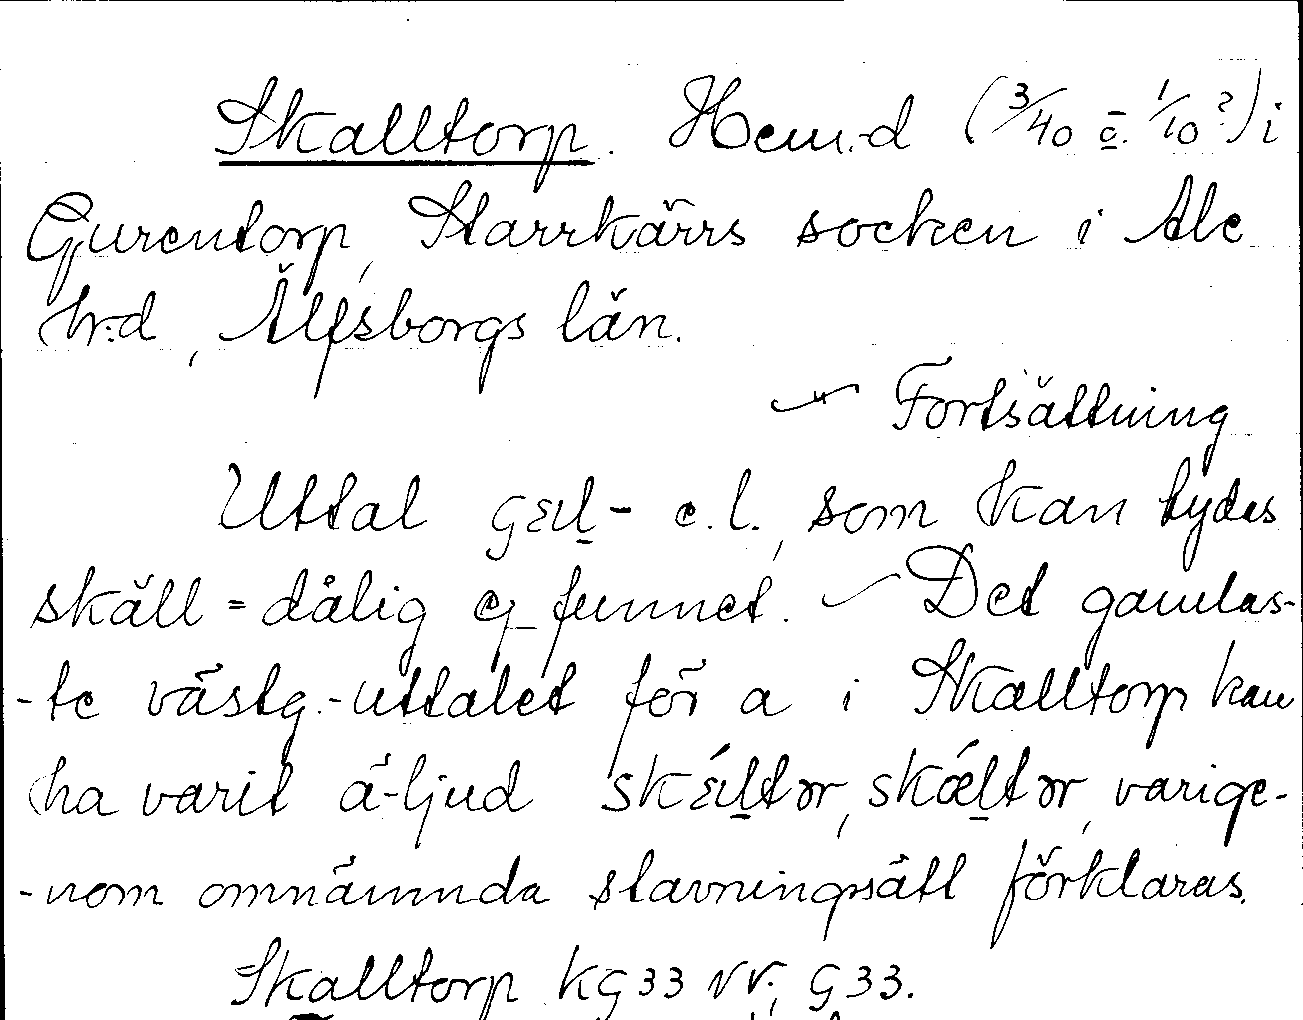 Skalltorp. Hem.-d (3/40 o. 1/10?) i
Gurentorp, Starrkärrs socken i Ale
hr:d, Älfsborgs län.
Fortsättning
Uttal e.l., som kan tydas
skäll = dålig ej funnet. Det gamlas-
-te västg.-uttalet för a i Skalltorp kan
ha varit ä-ljud varige-
-nom omnämnda stavningssätt förklaras.
Skalltorp KG 33 NV., G 33.